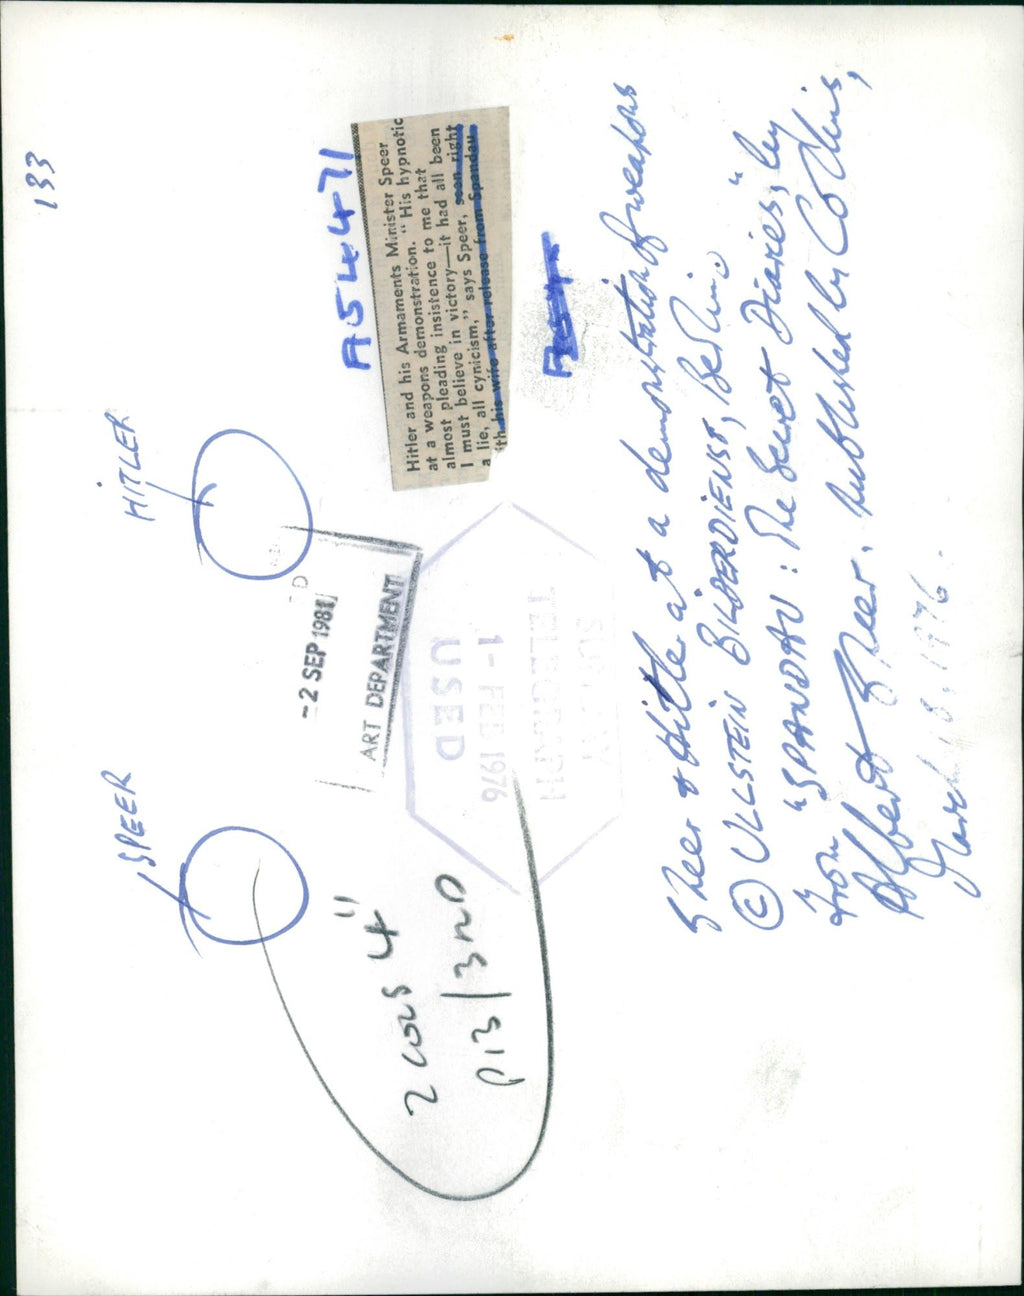 133
HITLER
SPEER
A54471
Hitler and his Armaments Minister Speer
at a weapons demonstration. "His hypnotic
almost pleading insistence to me that
I must believe in victory—it had all been
a lie, all cynicism," says Speer, seen right
with his wife after release from Spandau.
- 2 SEP 1981
ART DEPARTMENT
SUNDAY
TELEGRAPH
1 - FEB 1976
USED
2 cols 4"
p13/3RD
Speer & Hitler at a demonstration of weapons
© ULLSTEIN BILDERDIENST, Berlin."
from "SPANDAU: The Secret Diaries, by
Albert Speer. Published by Collins,
March 18, 1976.